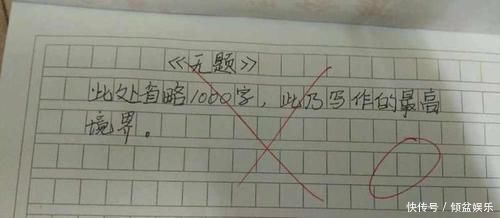 《无题》
此处省略1000字，此乃写作的最高
境界。
快传号 / 倾盆娱乐